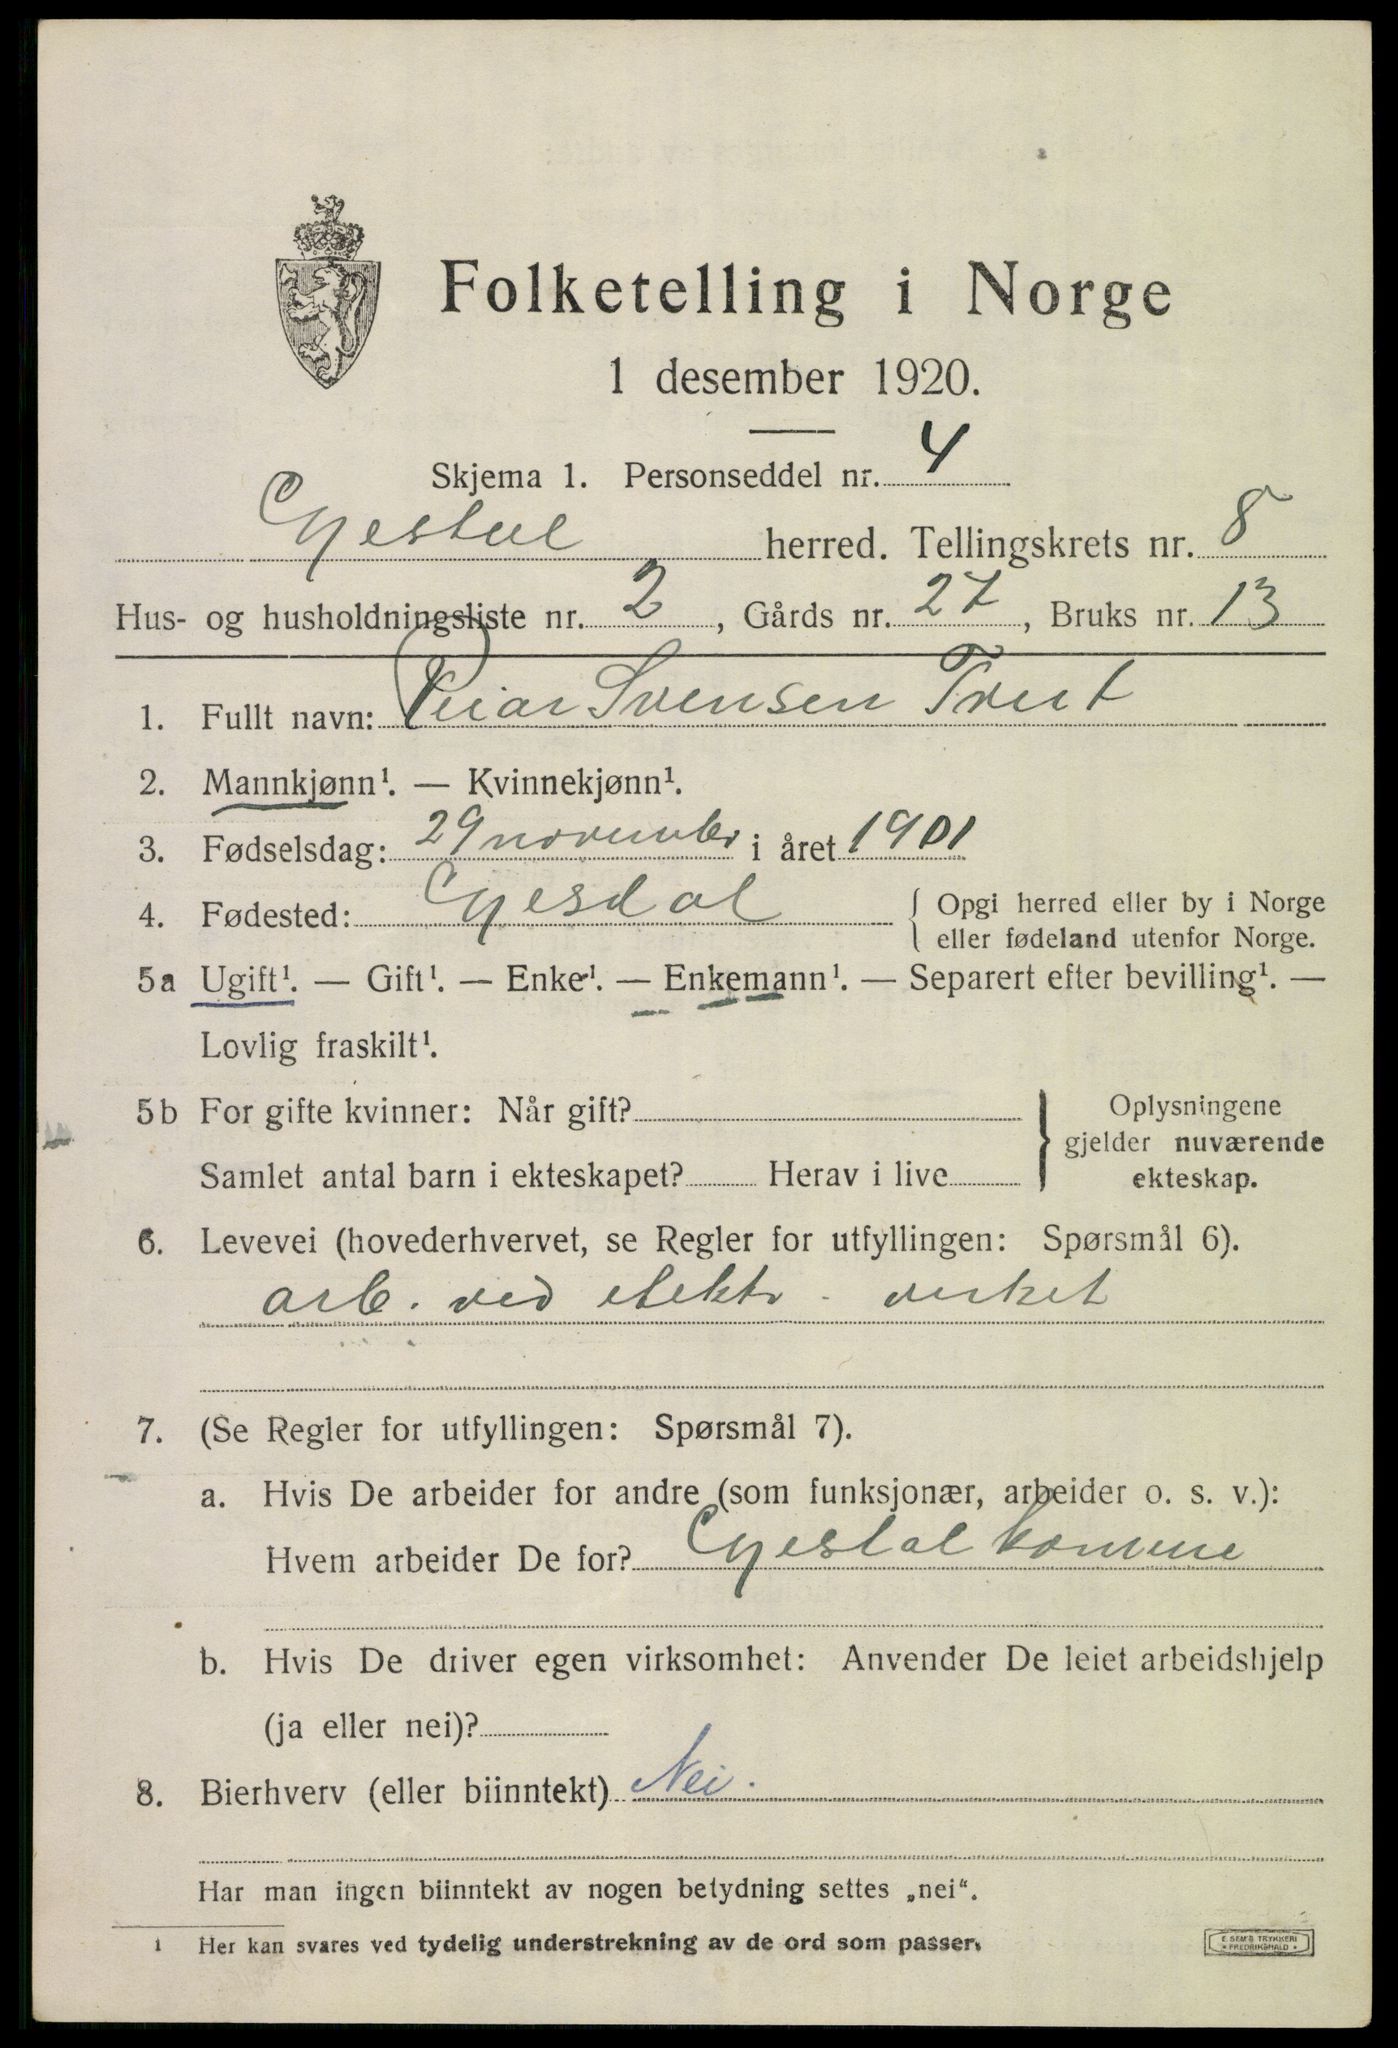 Folketelling i Norge
1 desember 1920.
Skjema 1. Personseddel nr. 4
Gjestal herred. Tellingskrets nr. 8
Hus- og husholdningsliste nr. 2, Gårds nr. 27, Bruks nr. 13
1. Fullt navn: Peiar Svensen Tveit
2. Mannkjønn¹. — Kvinnekjønn¹.
3. Fødselsdag: 29 november i året 1901
4. Fødested: Gjesdal { Opgi herred eller by i Norge
eller fødeland utenfor Norge.
5a Ugift¹. — Gift¹. — Enke¹. — Enkemann¹. — Separert efter bevilling¹. —
Lovlig fraskilt¹.
5b For gifte kvinner: Når gift? } Oplysningene
gjelder nuværende
Samlet antal barn i ekteskapet? Herav i live ekteskap.
6. Levevei (hovederhvervet, se Regler for utfyllingen: Spørsmål 6).
arb. ved elektr. verket
7. (Se Regler for utfyllingen: Spørsmål 7).
a. Hvis De arbeider for andre (som funksjonær, arbeider o. s. v.):
Hvem arbeider De for? Gjestal komune
b. Hvis De driver egen virksomhet: Anvender De leiet arbeidshjelp
(ja eller nei)?
8. Bierhverv (eller biinntekt) Nei.
Har man ingen biinntekt av nogen betydning settes „nei".
1 Her kan svares ved tydelig understrekning av de ord som passer.
E. SEM'S TRYKKERI
* FREDRIKSHALD *